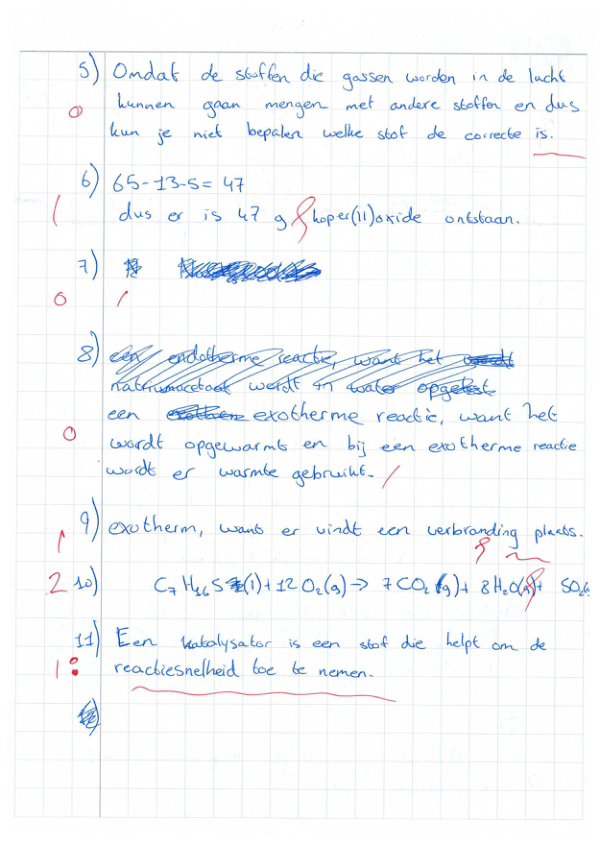 5) Omdat de stoffen die gassen worden in de lucht
0 kunnen gaan mengen met andere stoffen en dus
kun je niet bepalen welke stof de correcte is.
6) 65-13-5= 47
1 dus er is 47 g koper(II)oxide ontstaan.
7)
0
8) een endotherme reactie, want het
natriumacetaat werdt in water opgelost
een exotherme reactie, want het
0 wordt opgewarmt en bij een exotherme reactie
wordt er warmte gebruikt.
9) exotherm, want er vindt een verbranding plaats.
1
2 10) C7H16S (l) + 12 O2(g) → 7 CO2 (g) + 8 H2O(g) + SO2(
11) Een katalysator is een stof die helpt om de
1 reactiesnelheid toe te nemen.